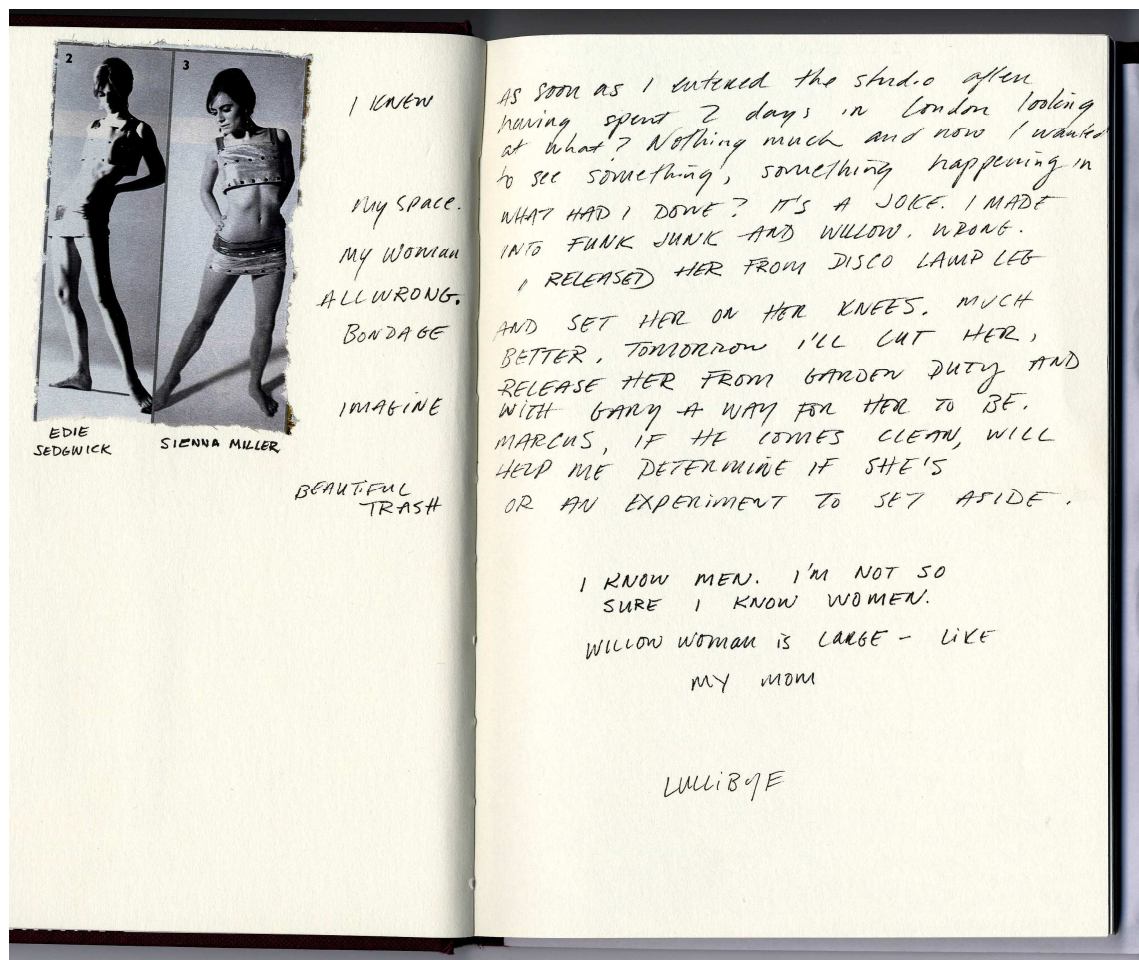 2
3
EDIE
SEDGWICK
SIENNA MILLER
I KNEW
MY SPACE.
MY WOMAN
ALL WRONG.
BONDAGE
IMAGINE
BEAUTIFUL
TRASH
As soon as I entered the studio after
having spent 2 days in London looking
at what? Nothing much and now I wanted
to see something, something happening in
WHAT HAD I DONE? IT'S A JOKE. I MADE
INTO FUNK JUNK AND WILLOW. WRONG.
I RELEASED HER FROM DISCO LAMP LEG
AND SET HER ON HER KNEES. MUCH
BETTER. TOMORROW I'LL CUT HER,
RELEASE HER FROM GARDEN DUTY AND
WITH GARY A WAY FOR HER TO BE.
MARCUS, IF HE COMES CLEAN, WILL
HELP ME DETERMINE IF SHE'S
OR AN EXPERIMENT TO SET ASIDE.
I KNOW MEN. I'M NOT SO
SURE I KNOW WOMEN.
WILLOW WOMAN IS LARGE - LIKE
MY MOM
LULLiByE